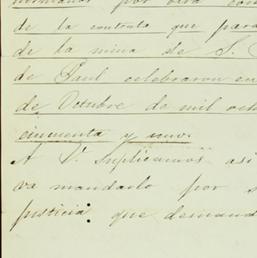 por otra
de la contrata que para
de la mina de S.
de Paul celebraron en
de Octubre de mil och
cincuenta y uno.
A V. suplicamos asi
va mandarlo por s
justicia: que demand